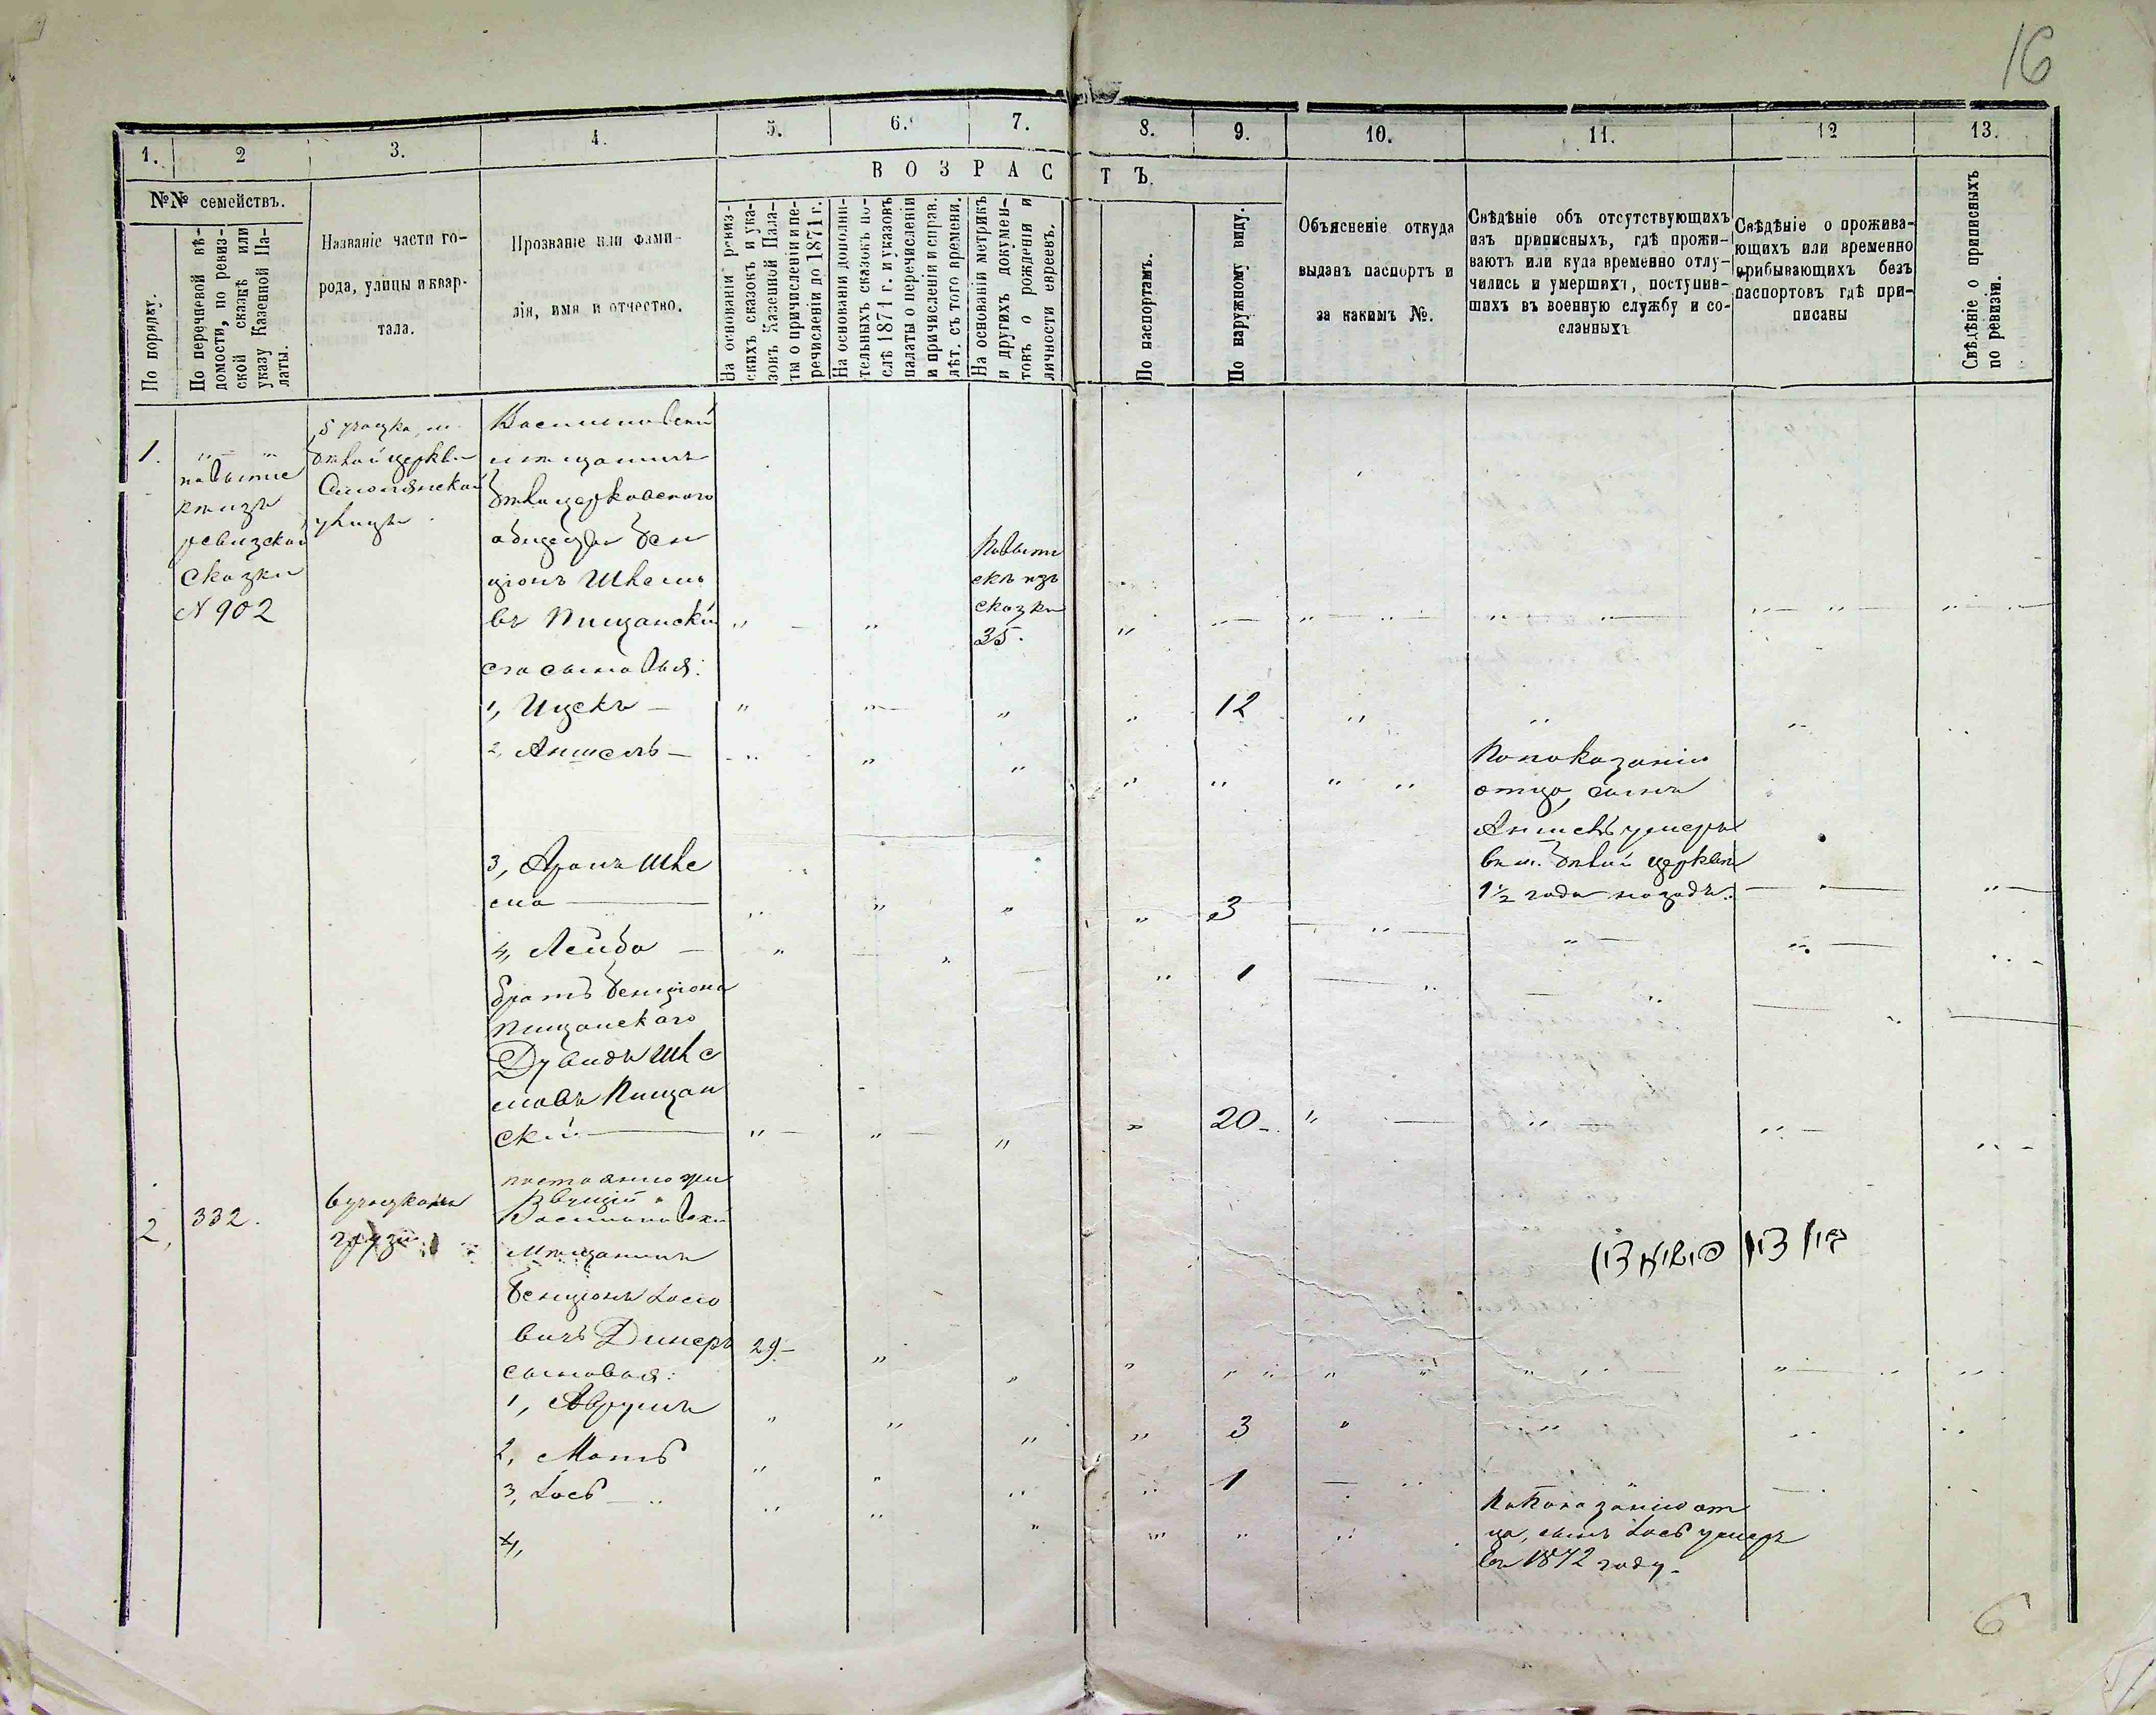 16
1.
2
3.
4.
5.
6.
7.
8.
9.
10.
11.
12
13.
ВОЗРАСТЪ.
№№ семействъ.
По порядку.
По перечневой вѣ-
домости, по ревиз-
ской сказкѣ или
указу Казенной Па-
латы.
Названіе части го-
рода, улицы и квар-
тала.
Прозваніе или фами-
лія, имя и отчество.
На основаніи ревиз-
скихъ сказокъ и ука-
зовъ Казенной Пала-
ты о причисленіи и пе-
речисленіи до 1871 г.
На основаніи дополни-
тельныхъ сказокъ по-
слѣ 1871 г. и указовъ
палаты о перечисленіи
и причисленіи и справ.
лѣт. съ того времени.
На основаніи метрикъ
и другихъ докумен-
товъ о рожденіи и
личности евреевъ.
По паспортамъ.
По наружному виду.
Объясненіе откуда
выданъ паспортъ и
за какимъ №.
Свѣдѣніе объ отсутствующихъ
изъ приписныхъ, гдѣ прожи-
ваютъ или куда временно отлу-
чились и умершихъ, поступив-
шихъ въ военную службу и со-
сланныхъ
Свѣдѣніе о прожива-
ющихъ или временно
прибывающихъ безъ
паспортовъ гдѣ при-
писаны
Свѣдѣніе о приписныхъ
по ревизіи.
1.
ревизской
сказки
N 902
5 участка м.
бѣлой церкви
улицѣ
Васильковскій
мѣщанинъ
бѣлоцерковского
общества Бен
ціонъ Шлемо
въ Пищанскій
его сыновья:
изъ
сказки
35.
1, Ицекъ —
12
2, Аншель —
По показанію
отца, сынъ
Аншель умеръ
въ м. бѣлой церкви
1½ года назадъ.
3, Аронъ Шле
ма —
3
4, Лейба —
1
братъ Бенціона
Пищанского
Дувидъ Шле
мовъ Пищан
скій —
20
2,
332.
постоянно жи
вущій
Васильковскій
мѣщанинъ
Бенціонъ Іосіо
вичъ Динеръ
29
сыновья:
1, Аврумъ
3
2, Мотъ
1
3, Іосъ
По показанію от
ца, сынъ Іосъ умеръ
въ 1872 году.
4,
6